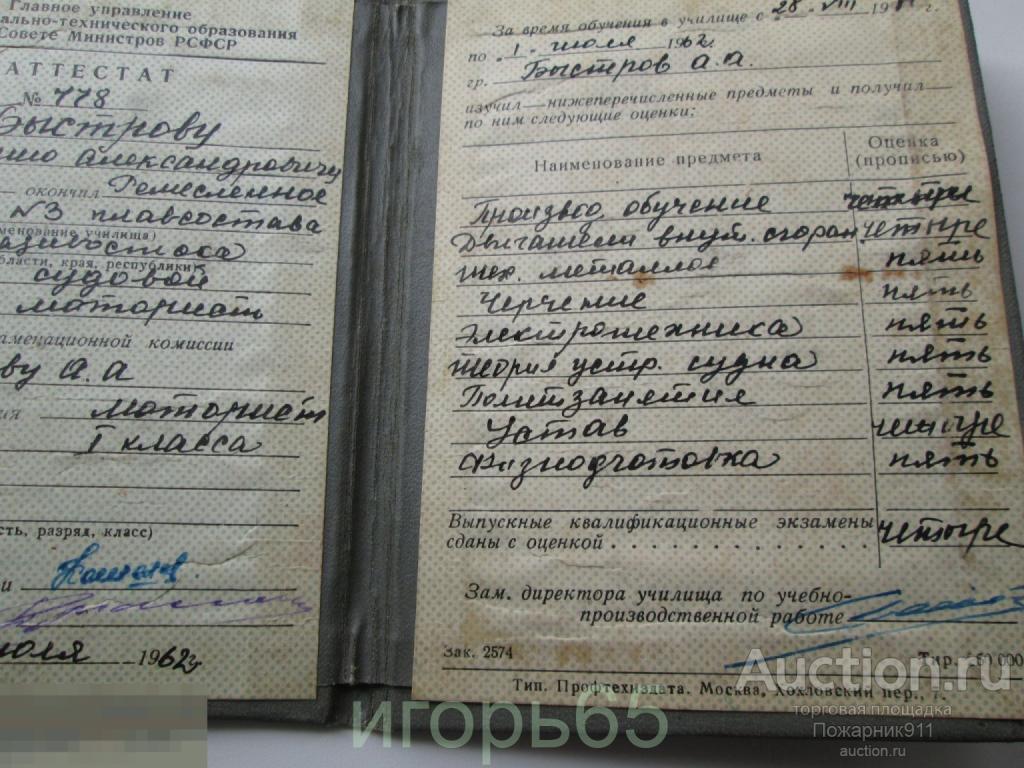 Главное управление
ально-технического образования
Совете Министров РСФСР
АТТЕСТАТ
№ 778
Быстрову
Александровичу
окончил Ремесленное
№3 плавсостава
менование училища)
адивостока
бласти, края, республики)
судовой
моторист
аменационной комиссии
ву А.А
ия моторист
I класса
сть, разряд, класс)
и
юля 1962г
За время обучения в училище с 28. VIII 19 г.
по 1. июля 1962г.
гр. Быстров А.А.
изучил нижеперечисленные предметы и получил
по ним следующие оценки:
Наименование предмета Оценка (прописью)
Производ. обучение четыре
Двигатели внут. сгоран четыре
тех. металлов пять
Черчение пять
Электротехника пять
теория устр. судна пять
Политзанятия пять
Устав четыре
Физподготовка пять
Выпускные квалификационные экзамены
сданы с оценкой . . . . . . . . . . . . четыре
Зам. директора училища по учебно-
производственной работе
Зак. 2574 Тир. 160 000
Тип. Профтехиздата. Москва, Хохловский пер., 7.
Auction.ru
торговая площадка
Пожарник911
auction.ru
игорь65